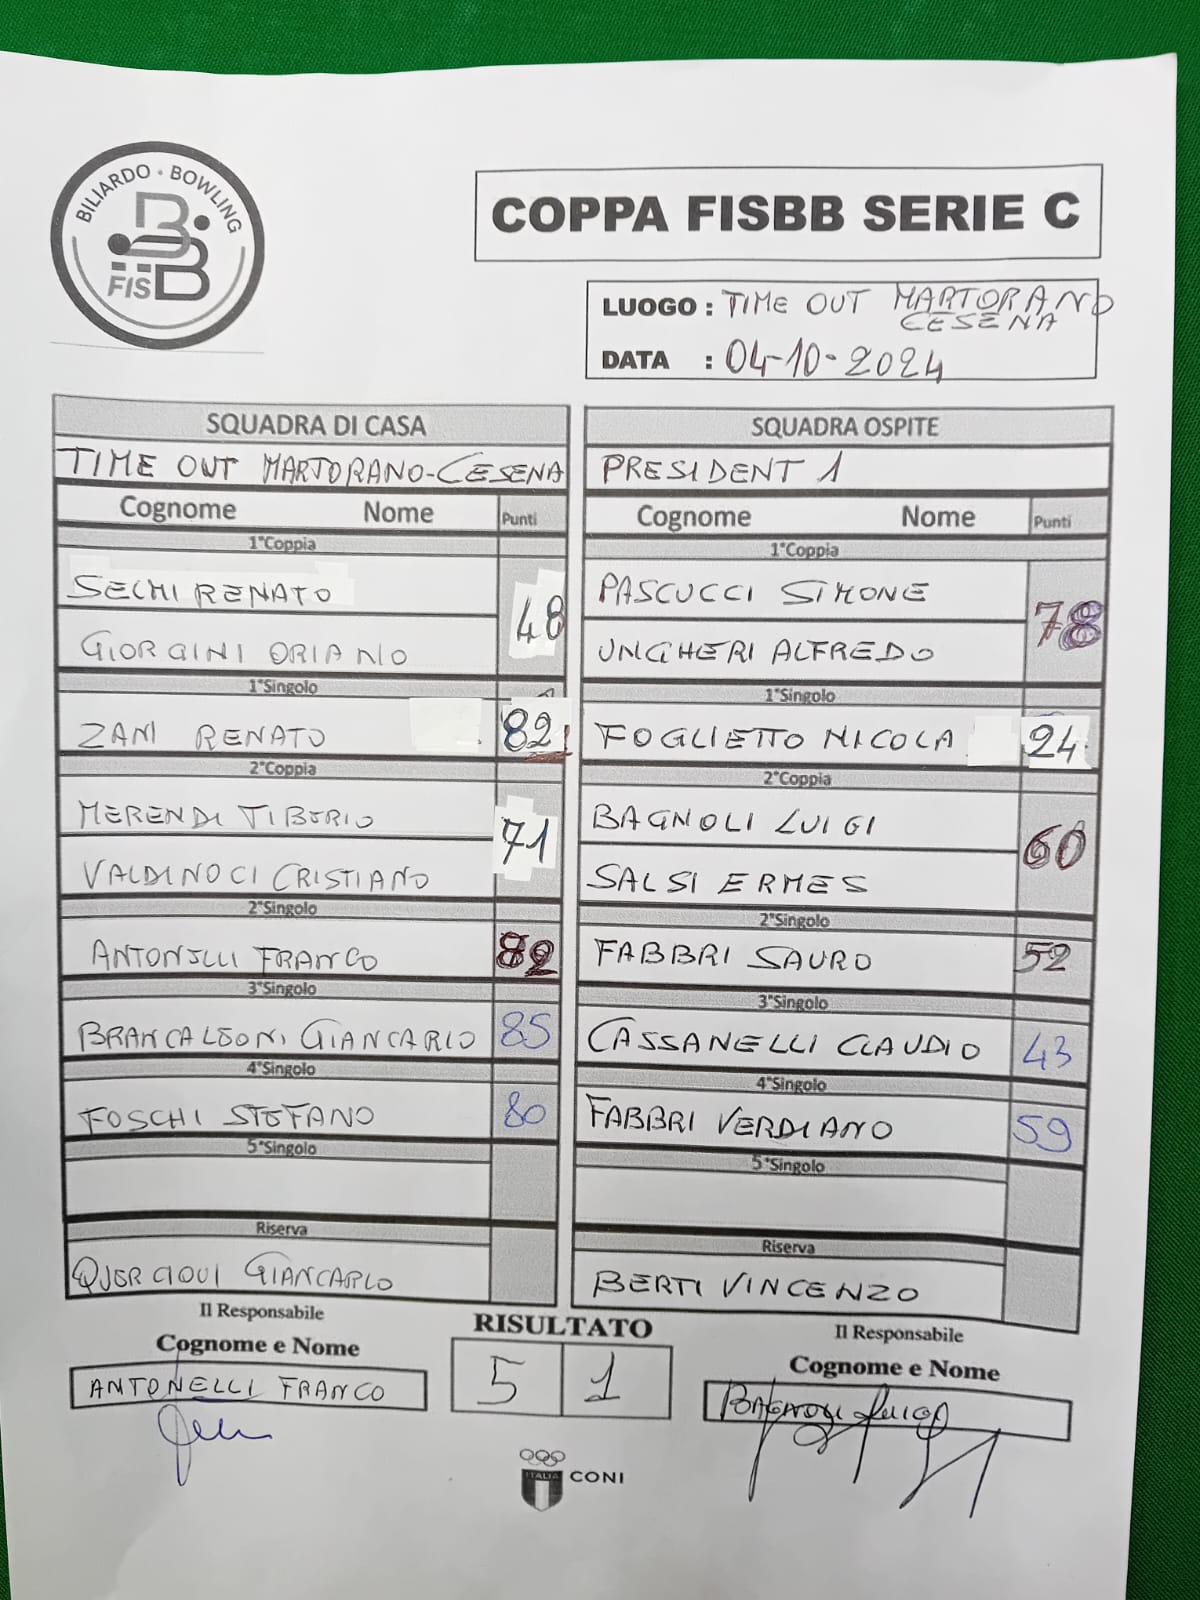 BILIARDO · BOWLING
FISBB
COPPA FISBB SERIE C
LUOGO : TIME OUT MARTORANO
CESENA
DATA : 04-10-2024
SQUADRA DI CASA
TIME OUT MARTORANO-CESENA
Cognome Nome Punti
1°Coppia
SECHI RENATO
48
GIORGINI ORIANO
1°Singolo
ZANI RENATO 82
2°Coppia
MERENDI TIBERIO
71
VALDINOCI CRISTIANO
2°Singolo
ANTONELLI FRANCO 82
3°Singolo
BRANCALEONI GIANCARLO 85
4°Singolo
FOSCHI STEFANO 80
5°Singolo
Riserva
QUERCIOUI GIANCARLO
Il Responsabile
Cognome e Nome
ANTONELLI FRANCO
SQUADRA OSPITE
PRESIDENT 1
Cognome Nome Punti
1°Coppia
PASCUCCI SIMONE
78
UNGHERI ALFREDO
1°Singolo
FOGLIETTO NICOLA 24
2°Coppia
BAGNOLI LUIGI
60
SALSI ERMES
2°Singolo
FABBRI SAURO 52
3°Singolo
CASSANELLI CLAUDIO 43
4°Singolo
FABBRI VERDIANO 59
5°Singolo
Riserva
BERTI VINCENZO
Il Responsabile
Cognome e Nome
BAGNOLI LUIGI
RISULTATO
5 1
ITALIA
CONI